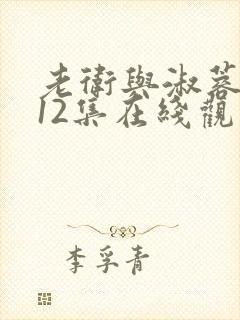 老衛與淑蓉
12集在綫觀
李孚青